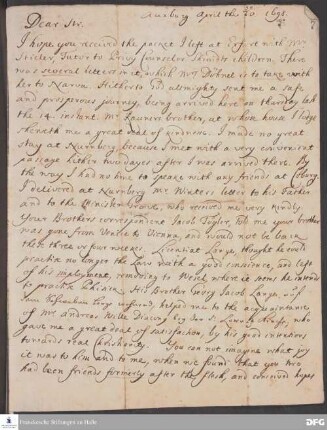 Augsburg April the 20 1698
Dear Sir.
I hope you received the pacquet I left at Erfurt with Mr
Stieler, Tutor to Privy Counseler Shmidts children. There
was several letters in it, which Mr is to take with
her to Narva. Hitherto God allmighty sent me a safe
and prosperous journey, being arrived here on thursday last
the 14. instant. Mr brother, at whose house I lodge
sheweth me a great deal of kindness. I made no great
stay at Nurnberg, because I met with a very convenient
passage hither two dayes after I was arrived there. By
the way I had no time to speake with any friends at Coburg.
I delivered at Nurnberg Mr Winters letter to his Father
and to the Minister, who received me very kindly.
Your Brothers correspondent Jacob told me your brother
was gone from Venice to Vienna and would not be back
these three or four weeks. Licentiat Lange, thought he could
practise no longer the Law with a good conscience, and left
of his imployment, removing to Wesel where it seems he intends
to practise. His Brother Georg Jacob Lange, Sub
helped me to the acquaintance
of Mr Andreas Wille Deacon, who
gave me a great deal of satisfaction, by his good intentions
towards real Christianity. You can not imagine what joy
it was to him and to me, when we found that you two
had been friends formerly after the flesh, and conceived hopes
Franckesche Stiftungen zu Halle
DFG